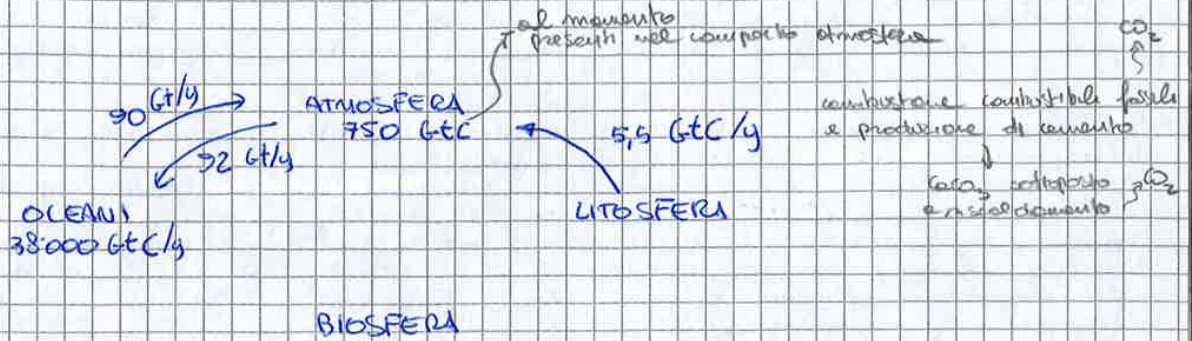 al momento
presenti nel comparto atmosfera
CO2
90 Gt/y
ATMOSFERA
750 GtC
combustione combustibili fossili
e produzione di cemento
5,5 GtC/y
92 Gt/y
CaCO3 sottoposto
a riscaldamento
CO2
OCEANI
38000 GtC/y
LITOSFERA
BIOSFERA